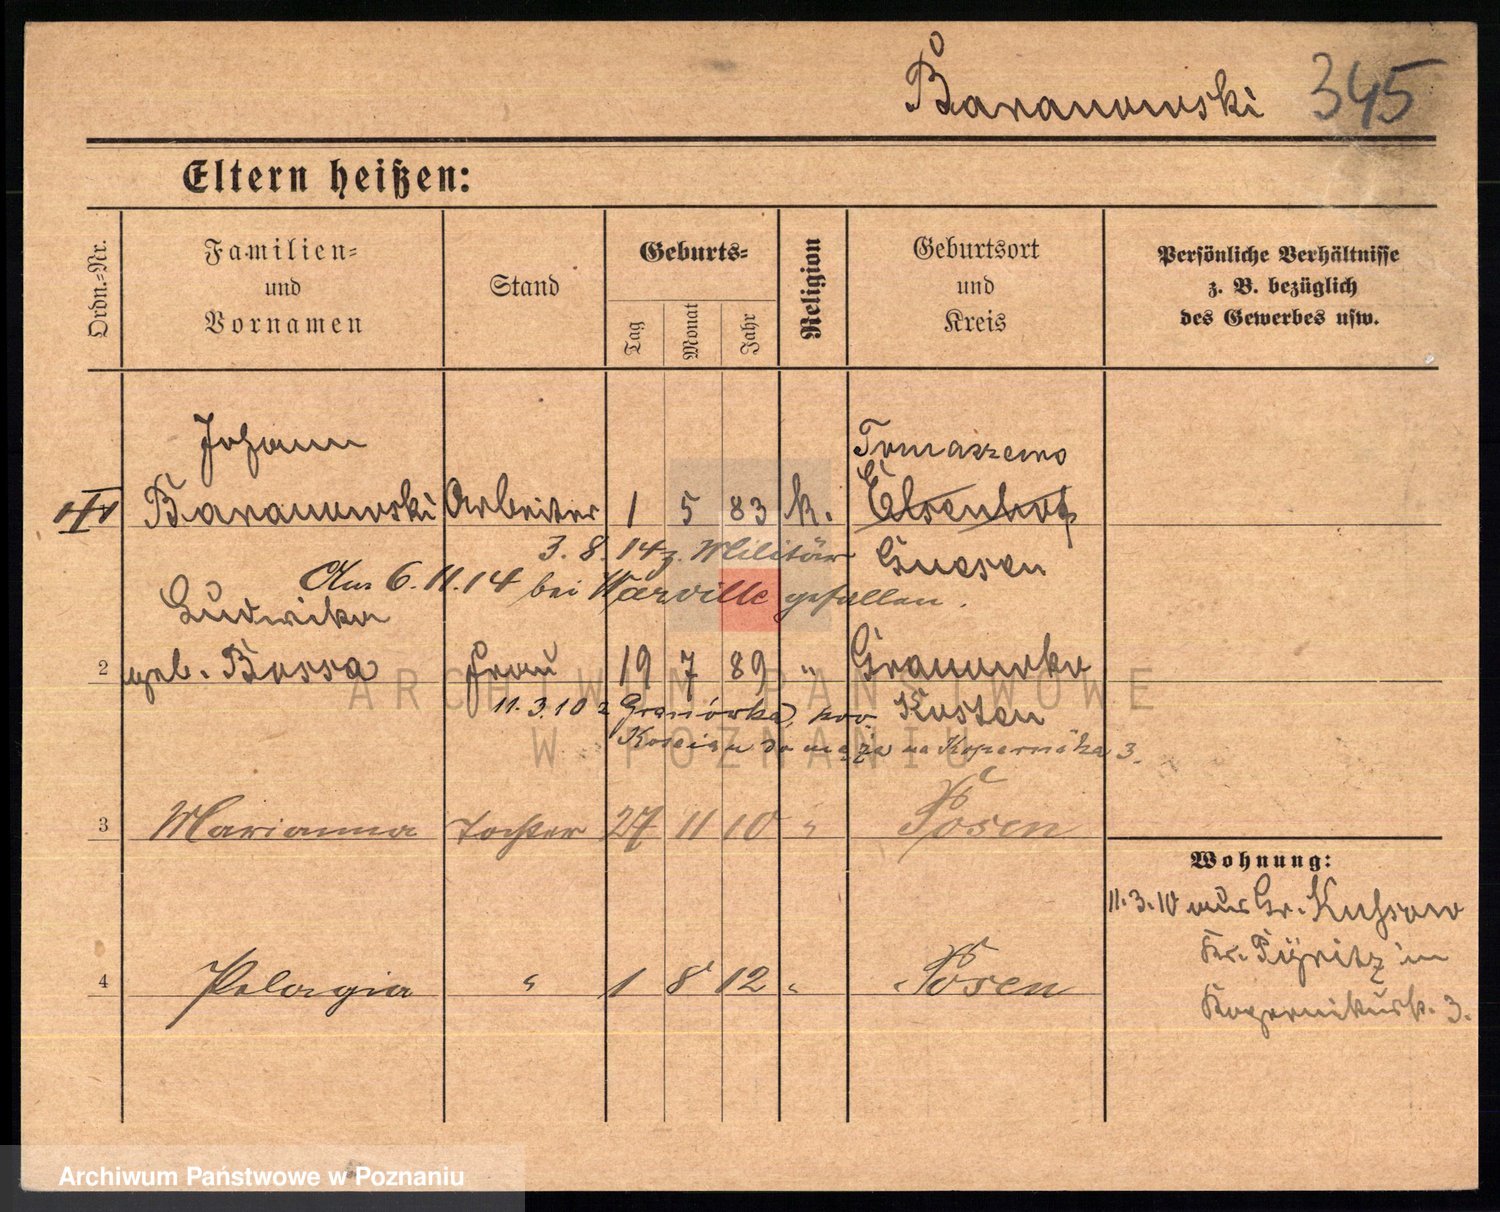 Baranowski 345
Eltern heißen:
Ordn.-Nr.
Familien-
und
Vornamen
Stand
Geburts-
Tag
Monat
Jahr
Religion
Geburtsort
und
Kreis
Persönliche Verhältnisse
z. B. bezüglich
des Gewerbes usw.
Johann
Baranowski Arbeiter 1 5 83 k.
Tomaszewo
Elsenhof
Gnesen
3. 8. 14 z. Militär
Am 6. 11. 14 bei Warville gefallen.
Ludwika
2 geb. Bossa Frau 19 7 89 " Granowko
Kosten
11. 3. 10 z Granówka, pow.
Kościan do męża na Kopernika 3.
3 Marianna Tochter 27 11 10 " Posen
4 Pelagia " 1 8 12 " Posen
Wohnung:
11. 3. 10 aus Gr. Küssow
Kr. Pyritz in
Kopernikusst. 3.
ARCHIWUM PAŃSTWOWE
W POZNANIU
Archiwum Państwowe w Poznaniu